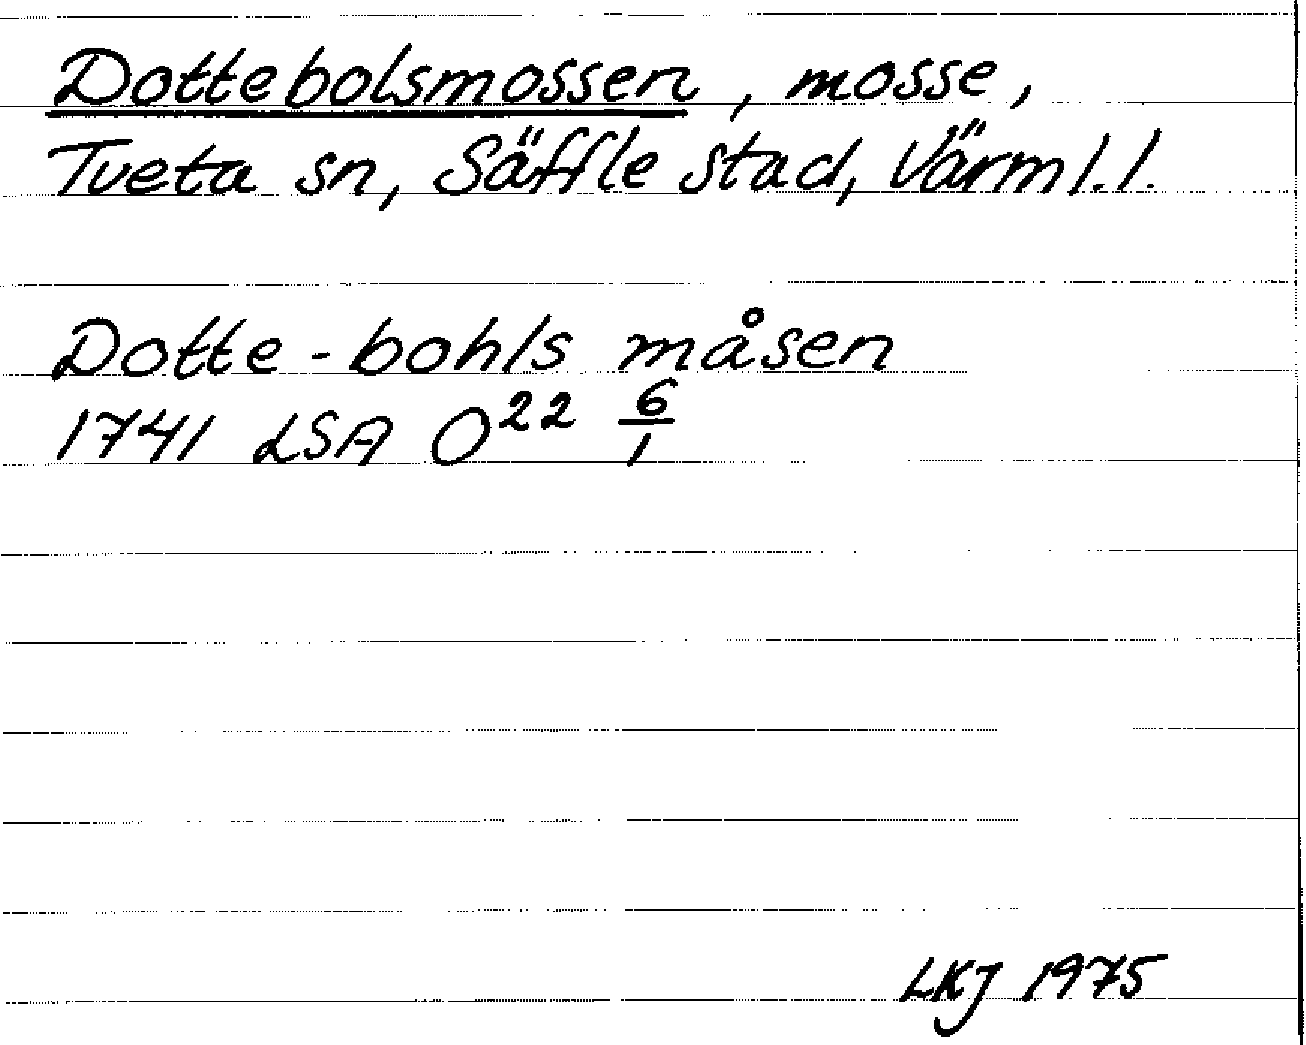 Dottebolsmossen, mosse,
Tveta sn, Säffle stad, Värml.l.
Dotte-bohls måsen
1741 LSA O²² 6/1
LKJ 1975